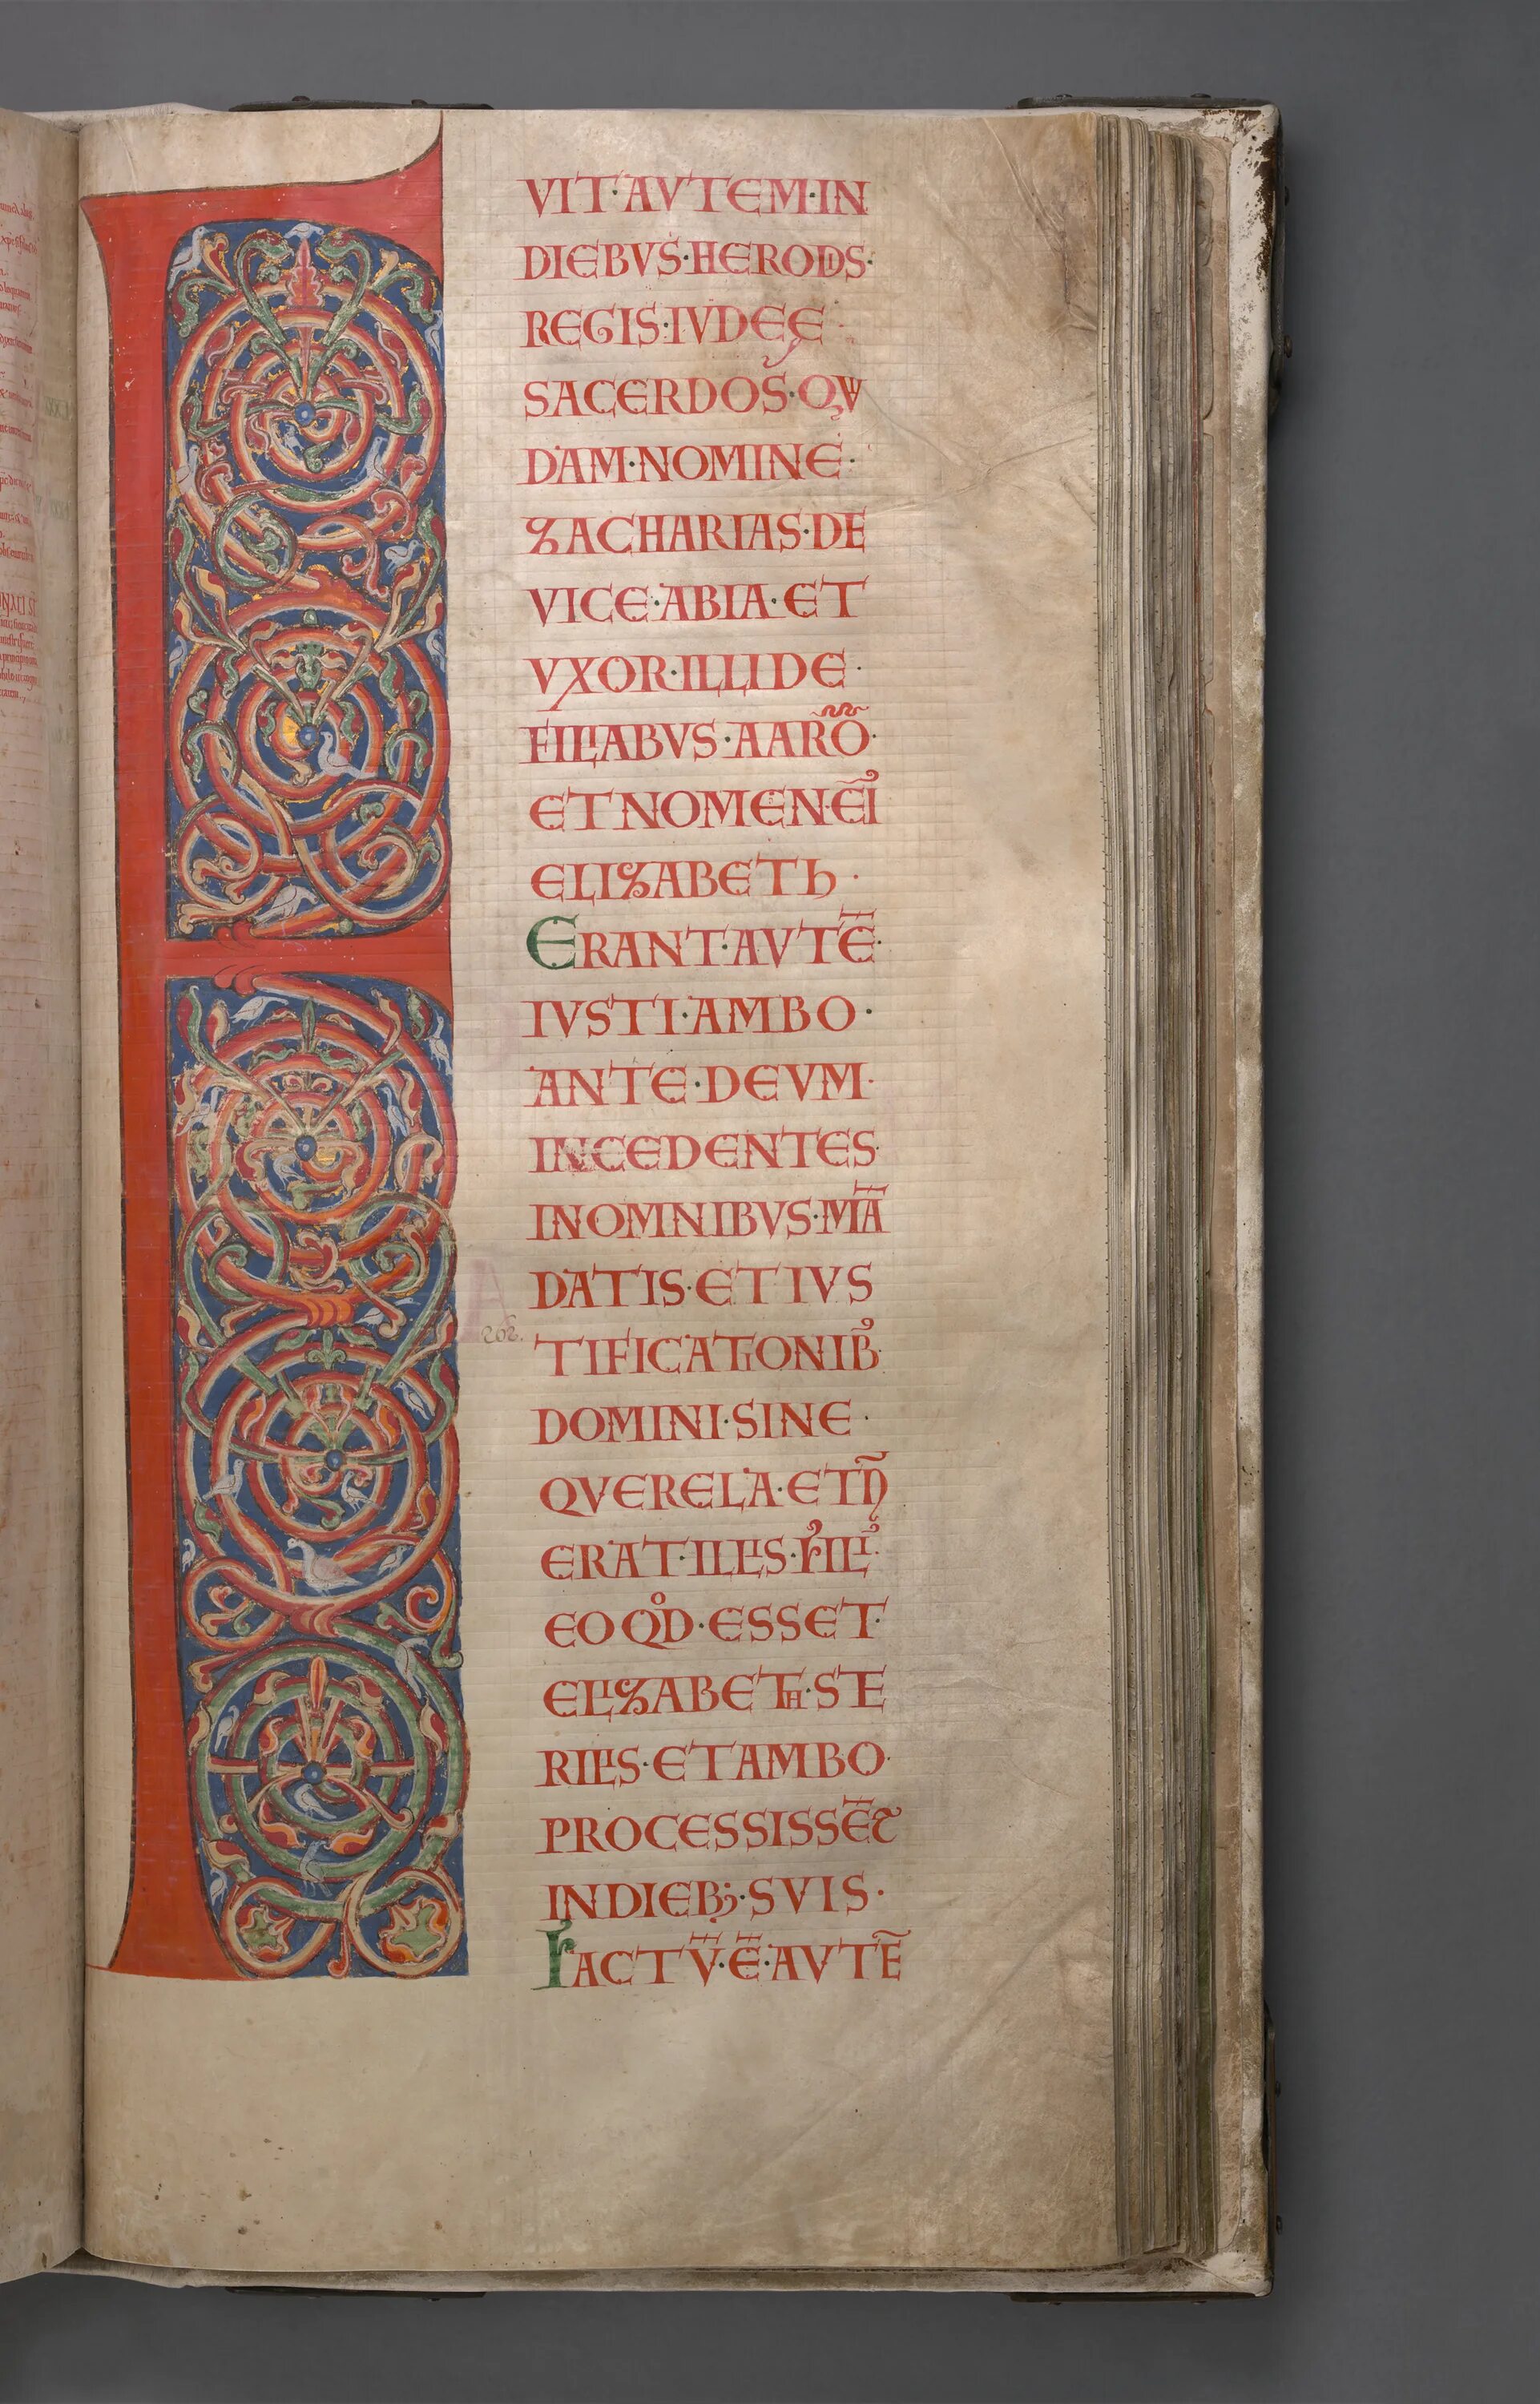 F
VIT·AVTEM·IN
DIEBVS·HERODIS·
REGIS·IVDEĘ
SACERDOS·QVI
DAM·NOMINE·
ZACHARIAS·DE
VICE·ABIA·ET
VXOR·ILLI DE·
FILIABVS·AARŌ·
ET NOMEN·EI᾿
ELIZABETh·
ERANT·AVTĒ·
IVSTI·AMBO·
ANTE·DEVM·
INCEDENTES·
IN OMNIBVS·MĀ
DATIS·ET IVS
TIFICATIONIB᾿
DOMINI·SINE·
QVERELA·ET Ñ
ERAT·ILLIS·FILI᾿
EO QͦD·ESSET·
ELIZABETH·STE
RILIS·ET AMBO·
PROCESSISSĒT
IN DIEB;·SVIS·
FACTV̄·Ē·AVTĒ
202.